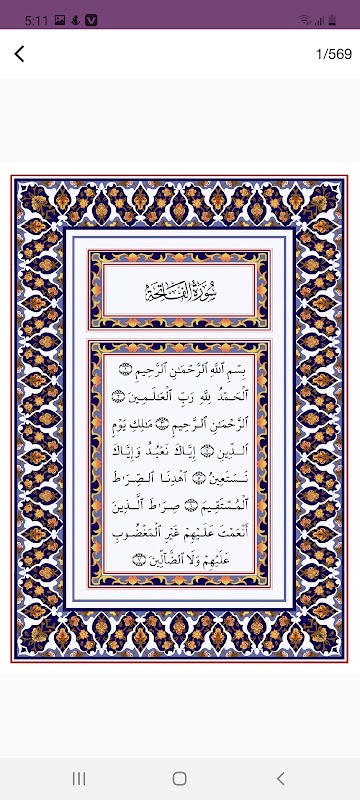 5:11
1/569
سُورَةُ الفَاتِحَةِ
بِسْمِ ٱللَّهِ ٱلرَّحْمَٰنِ ٱلرَّحِيمِ ١
ٱلْحَمْدُ لِلَّهِ رَبِّ ٱلْعَٰلَمِينَ ٢
ٱلرَّحْمَٰنِ ٱلرَّحِيمِ ٣ مَٰلِكِ يَوْمِ
ٱلدِّينِ ٤ إِيَّاكَ نَعْبُدُ وَإِيَّاكَ
نَسْتَعِينُ ٥ ٱهْدِنَا ٱلصِّرَٰطَ
ٱلْمُسْتَقِيمَ ٦ صِرَٰطَ ٱلَّذِينَ
أَنْعَمْتَ عَلَيْهِمْ غَيْرِ ٱلْمَغْضُوبِ
عَلَيْهِمْ وَلَا ٱلضَّآلِّينَ ٧